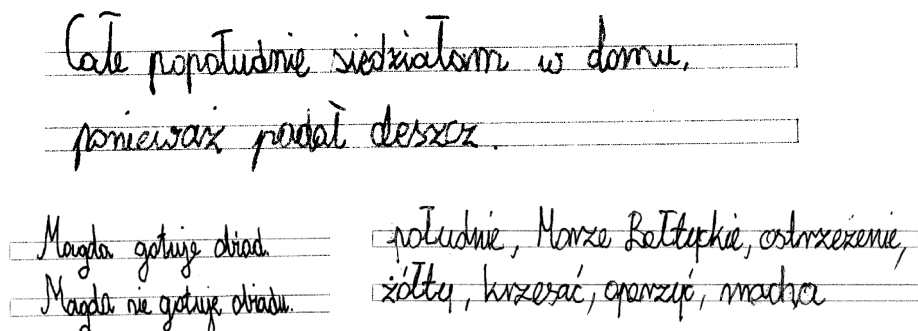 Całe popołudnie siedziałam w domu,
ponieważ padał deszcz.
Magda gotuje obiad.
Magda nie gotuje obiadu.
południe, Morze Bałtyckie, ostrzeżenie,
żółty, krzesać, oparzyć, macha